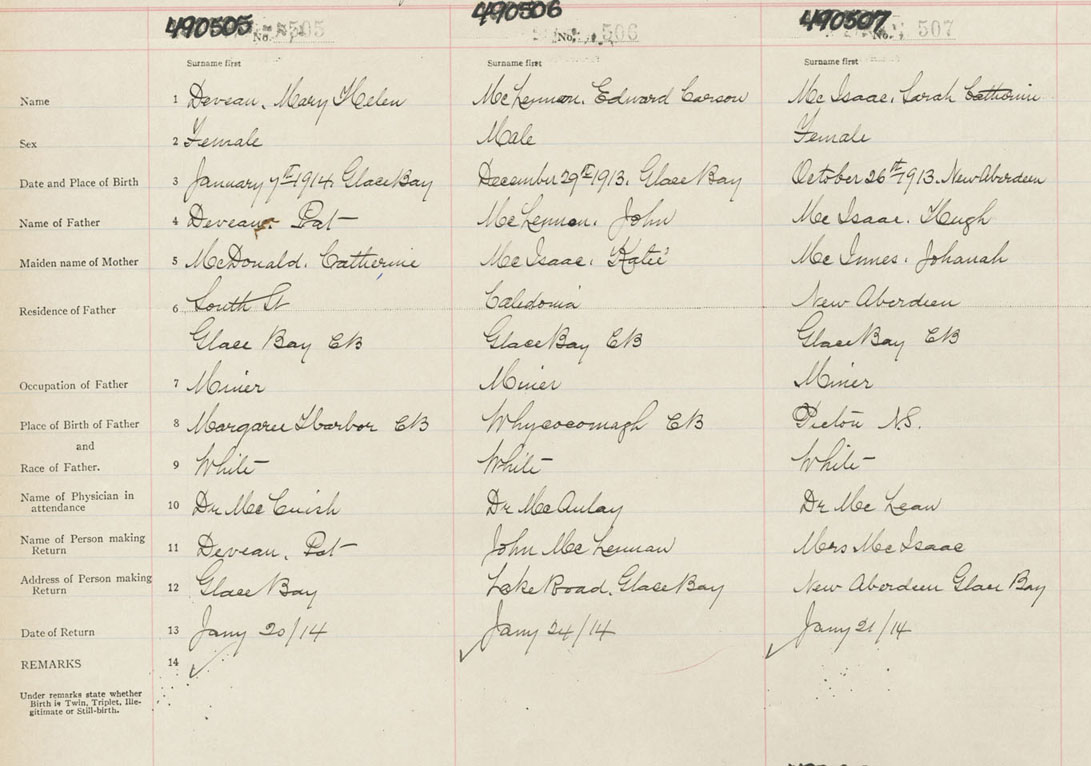 490505 No. 505 490506 No. 506 490507 No. 507
Surname first Surname first Surname first
Name 1 Deveau, Mary Helen McLennon, Edward Carson Mc Isaac, Sarah Catherine
Sex 2 Female Male Female
Date and Place of Birth 3 January 7th 1914, Glace Bay December 29th 1913, Glace Bay October 26th 1913, New Aberdeen
Name of Father 4 Deveau, Pat McLennon, John Mc Isaac, Hugh
Maiden name of Mother 5 McDonald, Catherine Mc Isaac, Katie Mc Innes, Johanah
Residence of Father 6 South St Caledonia New Aberdeen
Glace Bay CB Glace Bay CB Glace Bay CB
Occupation of Father 7 Miner Miner Miner
Place of Birth of Father 8 Margaree Harbor CB Whycocomagh CB Pictou N.S.
and
Race of Father. 9 White White White
Name of Physician in attendance 10 Dr McCuish Dr McAulay Dr Mc Lean
Name of Person making Return 11 Deveau, Pat John McLennan Mrs McIsaac
Address of Person making Return 12 Glace Bay Lake Road, Glace Bay New Aberdeen Glace Bay
Date of Return 13 Jany 20/14 Jany 24/14 Jany 21/14
REMARKS 14
Under remarks state whether
Birth is Twin, Triplet, Ille-
gitimate or Still-birth.